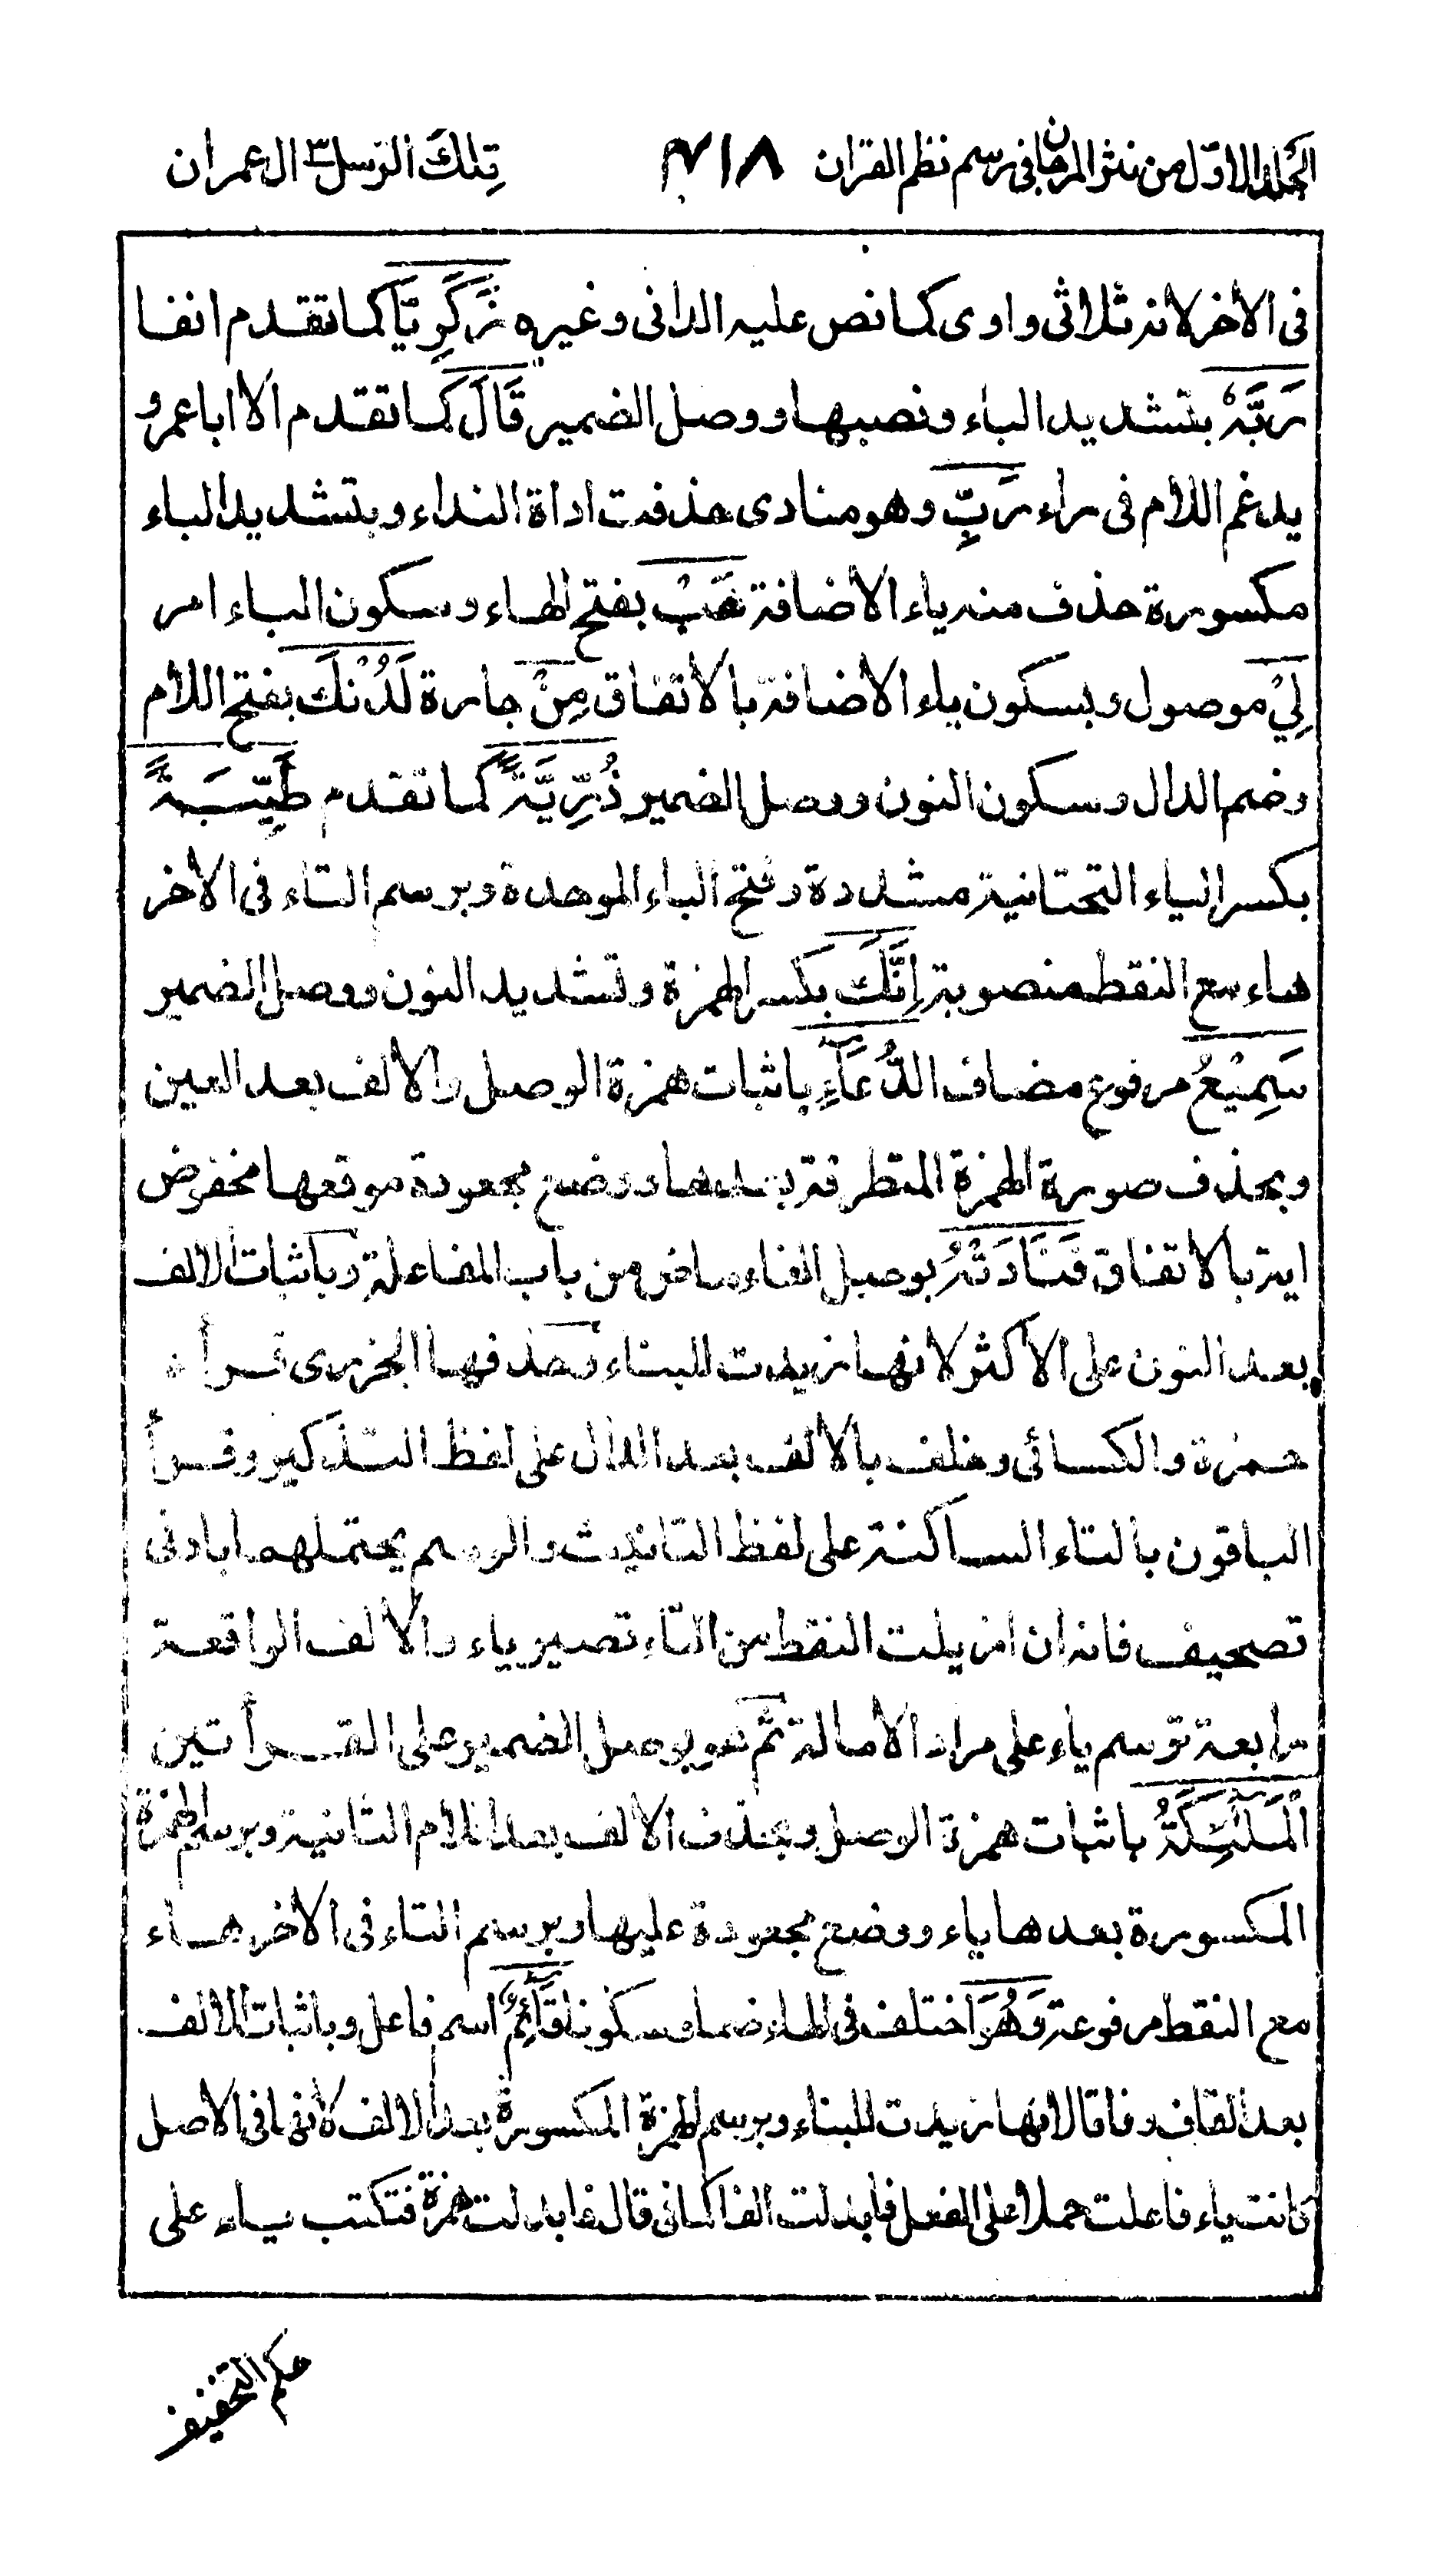 الجلد الاول من نثر المرجان فى رسم نظم القران ٣١٨ تِلكَ الرّسل ٣ ال عمران
فى الاخر لانه ثلاثى واوى كما نص عليه الدانى وغيره زَكَرِيَّا كما تقدم انفا
رَبَّهٗ بتشديد الباء ونصبها ووصل الضمير قَالَ كما تقدم الا ابا عمرو
يدغم اللام فى راء رَبِّ وهو منادى حذفت اداة النداء وبتشديد الباء
مكسورة حذف منه ياء الاضافة هَبْ بفتح الهاء وسكون الباء امر
لِيْ موصول وبسكون ياء الاضافة بالاتفاق مِنْ جارة لَدُنْكَ بفتح اللام
وضم الدال وسكون النون ووصل الضمير ذُرِّيَّةً كما تقدم طَيِّبَةً
بكسر الياء التحتانية مشددة وفتح الباء الموحدة وبرسم التاء فى الاخر
هاء مع النقط منصوبة اِنَّكَ بكسر الهمزة وتشديد النون ووصل الضمير
سَمِيْعُ مرفوع مضاف الدُّعَآءِ باثبات همزة الوصل والالف بعد العين
وبحذف صورة الهمزة المتطرفة بعدها ووضع مجعودة موقعها مخفوض
اية بالاتفاق فَنَادَتْهُ بوصل الفاء ماض من باب المفاعلة وباثبات الالف
بعد النون على الاكثر لانها زيدت للبناء وحذفها الجزرى قرأ
حمزة والكسائى وخلف بالالف بعد الدال على لفظ التذكير وقرأ
الباقون بالتاء الساكنة على لفظ التانيث والرسم يحتملهما بادنى
تصحيف فانه ان ازيلت النقط من التاء تصير ياء والالف الواقعة
رابعة ترسم ياء على مراد الامالة ثم هو بوصل الضمير على القرأتين
الْمَلٰٓئِكَةُ باثبات همزة الوصل وبحذف الالف بعد اللام الثانية وبرسم الهمزة
المكسورة بعدها ياء ووضع مجعودة عليها وبرسم التاء فى الاخر هاء
مع النقط مرفوعة وَهُوَ اختلف فى الهاء ضما وسكونا قَآئِمٌ اسم فاعل وباثبات الالف
بعد القاف وفاقا لانها زيدت للبناء وبرسم الهمزة المكسورة بعد الالف لانها فى الاصل
كانت ياء فاعلت حملا على الفعل فابدلت الفا كما فى قال فابدلت همزة فتكتب ياء على
حكم التخفيف